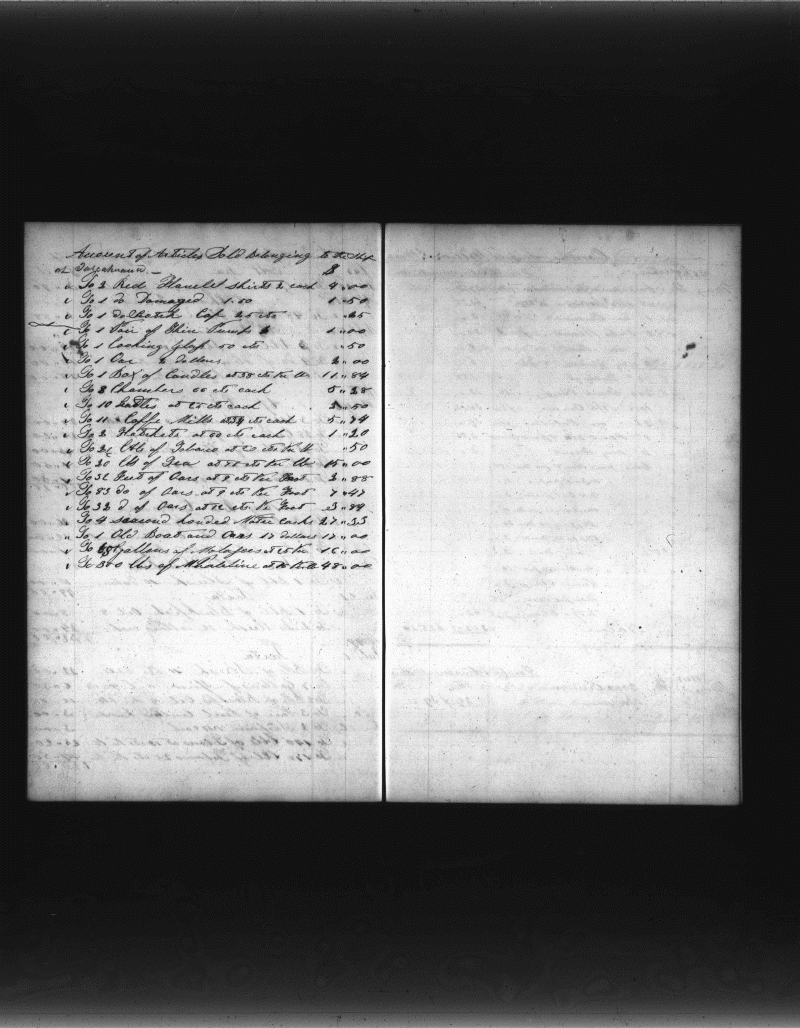 Account of Articles Sold Belonging to the Ship
at
To 2 Red Flannel Shirts 2 each 4.. 00
To 1 do Damaged 1.50 1.. 50
To 1 do Cap 25 cts .. 25
To 1 Pair of Thin Pumps 1.. 00
To 1 Looking Glass 50 cts .. 50
To 1 Oar 2 dollars 2.. 00
To 1 Box of Candles at 38 cts the lb 11.. 84
To 8 Chambers 66 cts each 5.. 28
To 10 Ladles at cts each 3.. 50
To 11 Coffe Mills at cts each 5.. 74
To 2 Hatchets at 60 cts each 1.. 20
To lbs of Tobacco at cts the lb .. 50
To 20 lbs of Tea at cts the lb 15.. 00
To 32 Feet of Oars at 9 cts the Foot 2.. 88
To 83 do of Oars at 9 cts the Foot 7.. 47
To 32 d of Oars at 12 cts the Foot 3.. 84
To 4 seacond handed Water Casks 27.. 33
To 1 Old Boat and Oars 17 dollars 17.. 00
To Gallons of Molasses at cts the 16.. 00
To 300 lbs of Whaleline at the lb 48.. 00